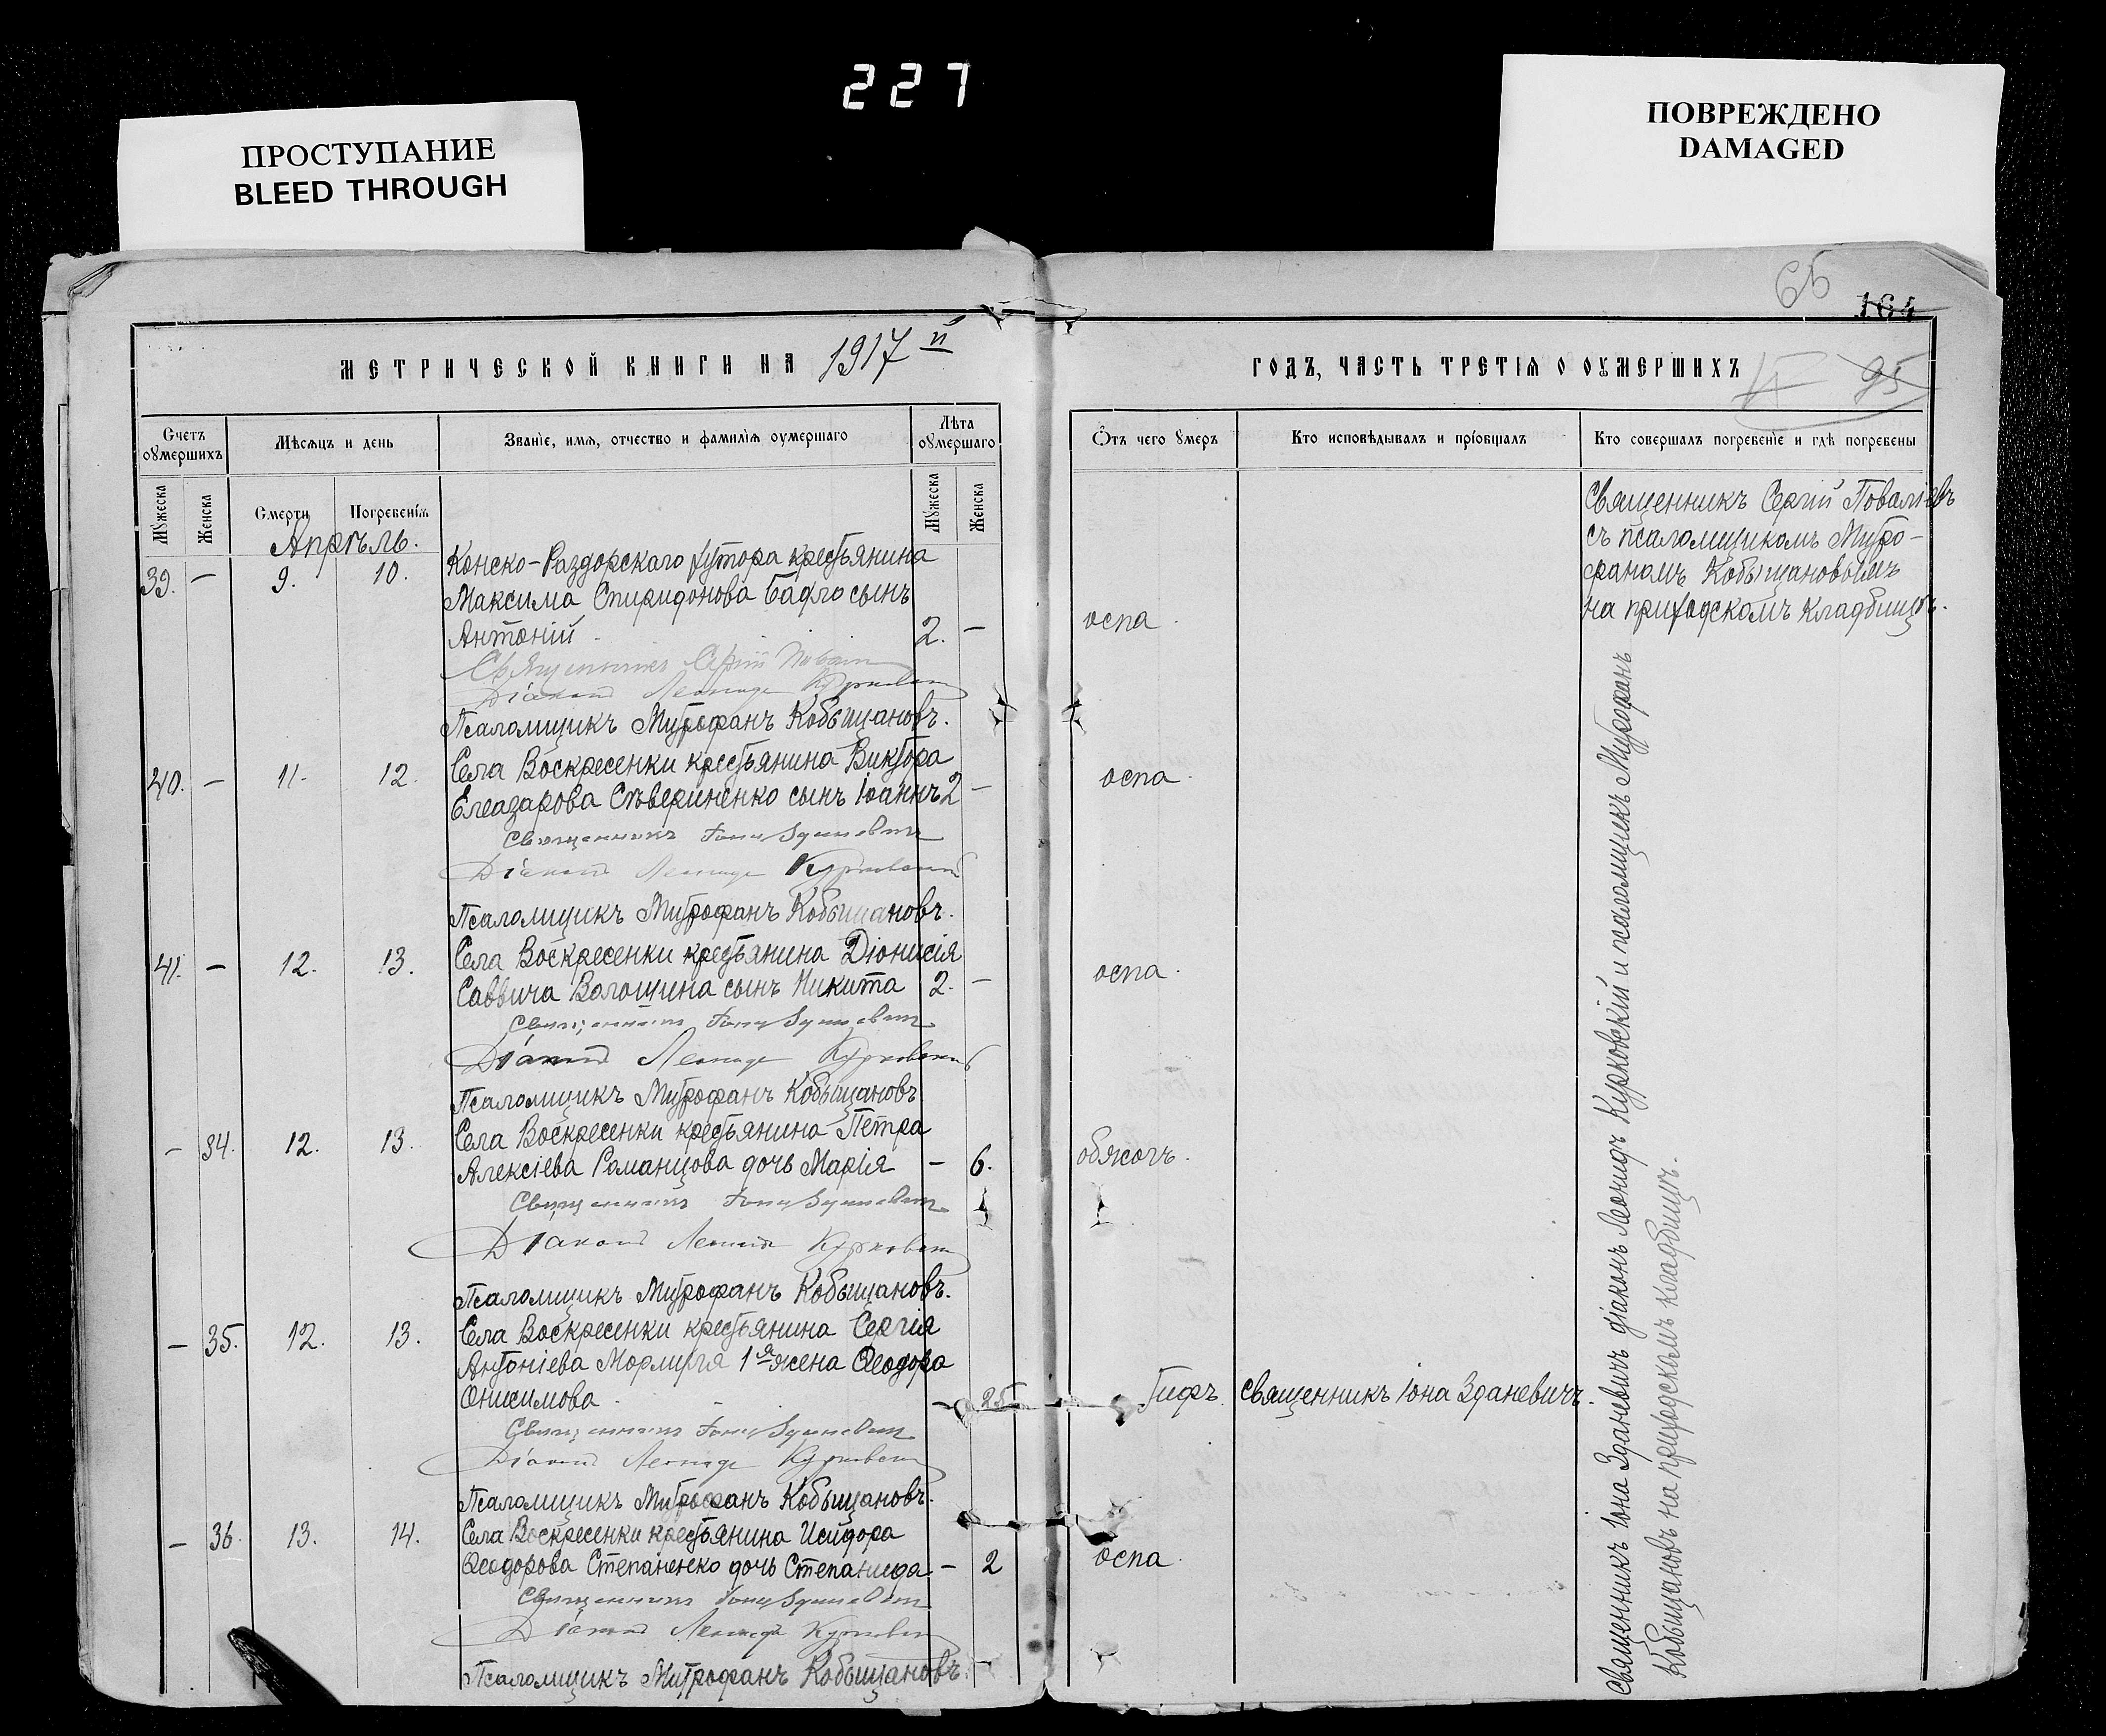 227
ПРОСТУПАНИЕ
BLEED THROUGH
ПОВРЕЖДЕНО
DAMAGED
66
164
95
МЕТРИЧЕСКОЙ КНИГИ НА 1917 й
ГОДЪ, ЧАСТЬ ТРЕТІЯ О ОУМЕРШИХЪ
Счетъ оумершихъ
Мѣсяцъ и день
Званіе, имя, отчество и фамилія оумершаго
Лѣта оумершаго
Отъ чего умеръ
Кто исповѣдывалъ и пріобщалъ
Кто совершалъ погребеніе и гдѣ погребены
Мужеска
Женска
Смерти
Погребенія
Мужеска
Женска
Апрѣль.
Священникъ Сергій Поваліевъ
съ псаломщикомъ Митро-
фаномъ Кобыщановымъ
на приходскомъ кладбищѣ.
Конско-Раздорскаго хутора крестьянина
39. — 9. 10.
Максима Спиридонова Бадло сынъ
Антоній 2. — оспа.
Священникъ Сергій
Діаконъ Леонидъ Курковскій
Псаломщикъ Митрофанъ Кобыщановъ.
Села Воскресенки крестьянина Виктора
40. — 11. 12. оспа.
Елеазарова Сѣвериненко сынъ Іоаннъ 2 —
Священникъ Іона Зданевичъ
Діаконъ Леонидъ Курковскій
Псаломщикъ Митрофанъ Кобыщановъ.
Села Воскресенки крестьянина Діонисія
41. — 12. 13. оспа.
Саввича Волошина сынъ Никита 2. —
Священникъ Іона Зданевичъ
Діаконъ Леонидъ Курковскій
Псаломщикъ Митрофанъ Кобыщановъ.
Села Воскресенки крестьянина Петра
— 34. 12. 13. обжогъ.
Алексіева Романцова дочь Марія — 6.
Священникъ Іона Зданевичъ
Діаконъ Леонидъ Курковскій
Псаломщикъ Митрофанъ Кобыщановъ.
Села Воскресенки крестьянина Сергія
— 35. 12. 13.
Антоніева 1я жена Ѳеодора
Онисимова — 25 Тифъ. Священникъ Іона Зданевичъ.
Священникъ Іона Зданевичъ
Діаконъ Леонидъ Курковскій
Псаломщикъ Митрофанъ Кобыщановъ.
Села Воскресенки крестьянина Исидора
— 36. 13. 14.
Ѳеодорова Степаненко дочь Степанида — 2 оспа.
Священникъ Іона Зданевичъ
Діаконъ Леонидъ Курковскій
Псаломщикъ Митрофанъ Кобыщановъ.
Священникъ Іона Зданевичъ діаконъ Леонидъ Курковскій и псаломщикъ Митрофанъ
Кобыщановъ на приходскомъ кладбищѣ.